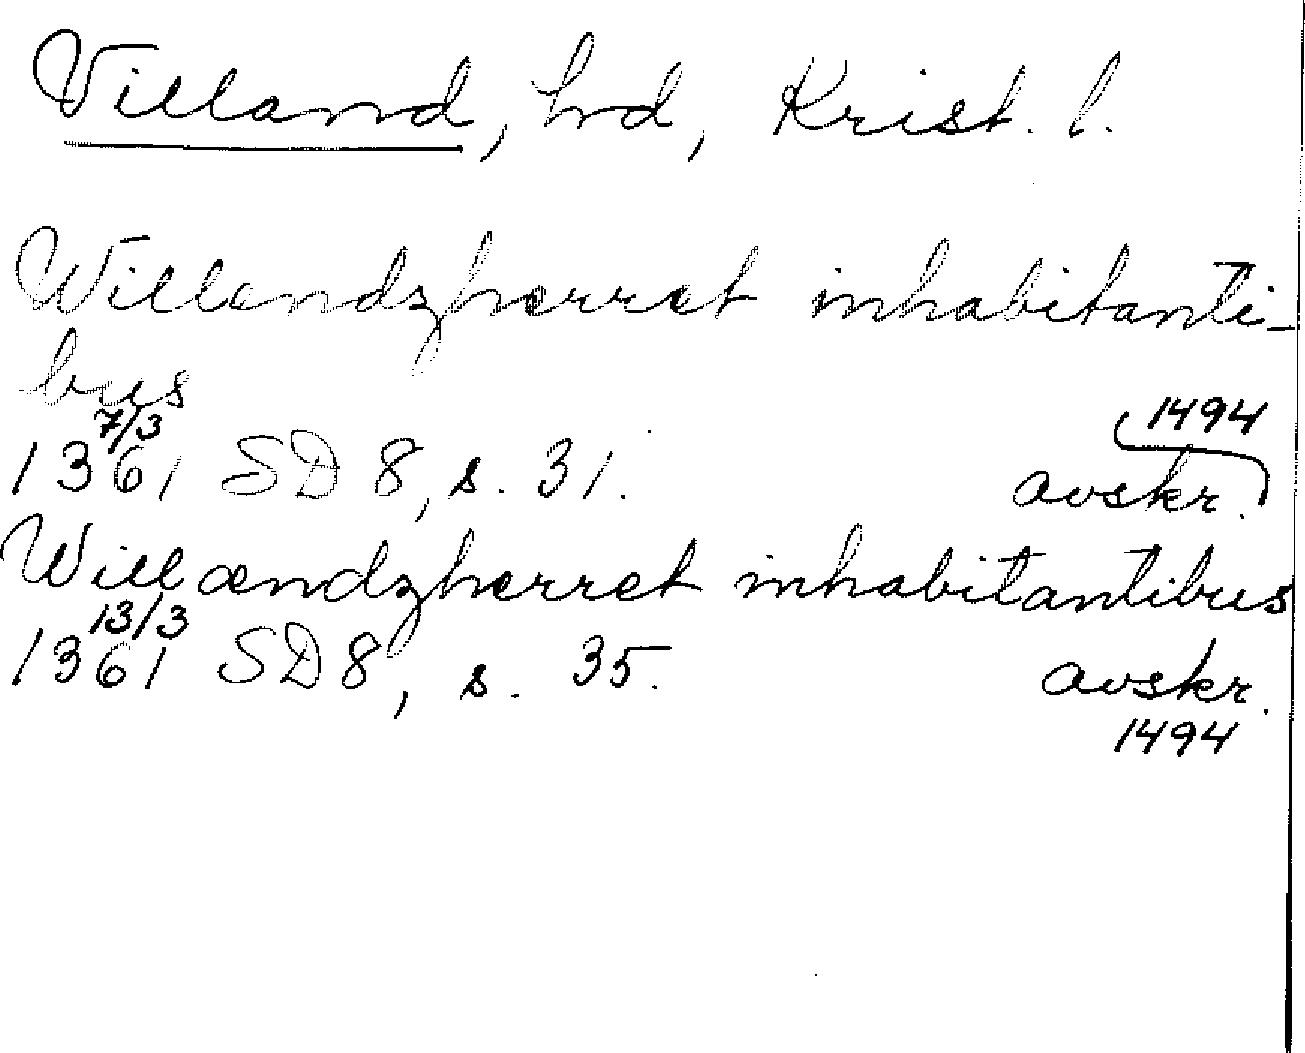 Villand, hd, Krist. l.
Willandzhærret inhabitanti-
bus
7/3 1494
1361 SD 8, s. 31. avskr.
Willændzherret inhabitantibus
13/3
1361 SD 8, s. 35. avskr.
1494